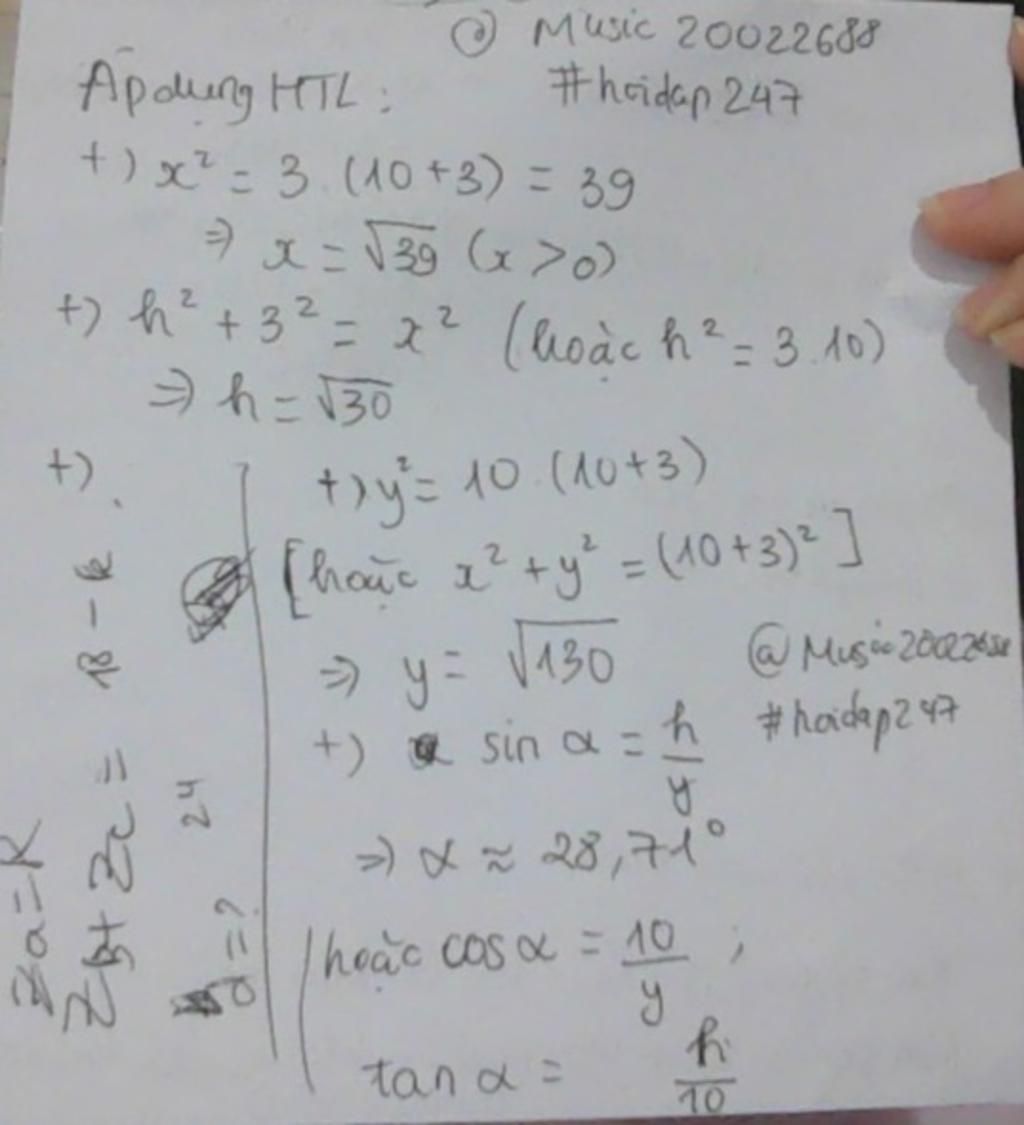 @ Music 20022688
Áp dụng HTL:
#hoidap247
+) x² = 3.(10+3) = 39
⇒ x = √39 (x > 0)
+) h² + 3² = x² (hoặc h² = 3.10)
⇒ h = √30
+).
+) y² = 10.(10+3)
[hoặc x² + y² = (10+3)²]
⇒ y = √130
@Music20022688
#hoidap247
+) sin α = h/y
⇒ α ≈ 28,71°
hoặc cos α = 10/y ;
tan α = h/10
24